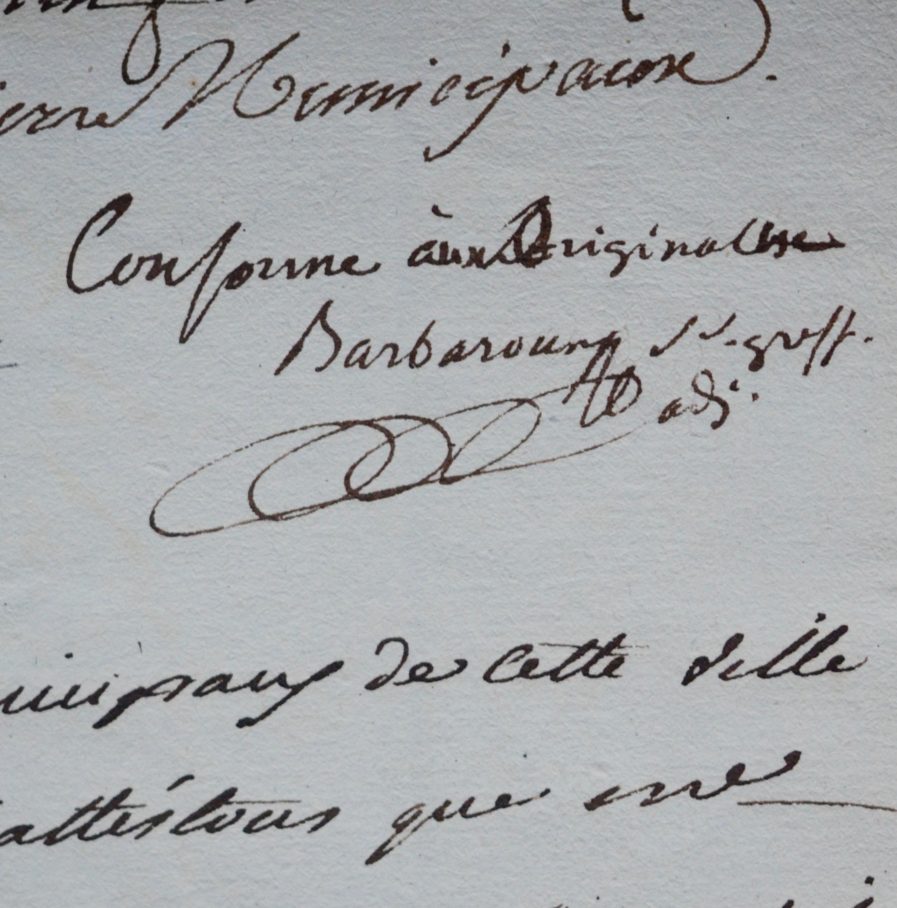 Municipaux.
Conforme aux Originalle
Barbaroux Sre. greff.
adj.
nicipaux de cette Ville
attéstons que